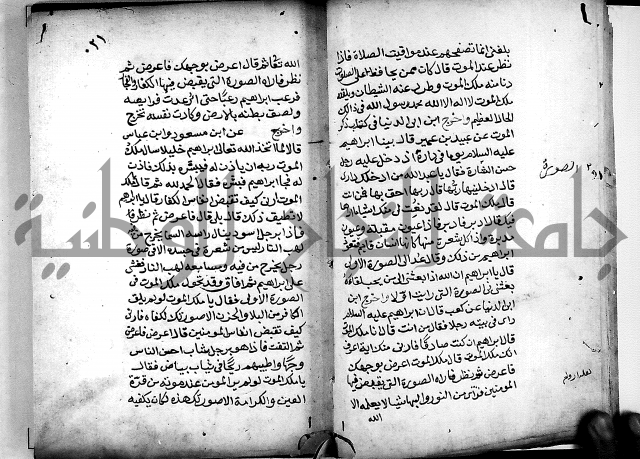 بلغني انما تصفحهم عند مواقيت الصلاة فاذا
نظر عند الموت فان كان ممن يحافظ على الصلوات
دنا منه ملك الموت وطرد عنه الشيطان ويلقنه
ملك الموت لا اله الا الله محمد رسول الله في ذلك
الحال العظيم واخرج ابن ابي الدنيا في كتاب ذكر
الموت عن عبيد بن عمير قال بينا ابراهيم
عليه السلام يوما في داره اذ دخل عليه رجل
حسن الشارة فقال يا عبد الله من ادخلك داري
قال ادخلنيها ربها قال ربها احق بها فمن انت
قال ملك الموت قال لقد نعت لي منك اشياء ما اراها
فيك قال ادبر فادبر فاذا عيون مقبلة وعيون
مدبرة واذا كل شعرة منها كانها انسان قائم فتعوذ
ابراهيم من ذلك وقال عد الى الصورة الاولى
قال يا ابراهيم ان الله اذا بعثني الى من يحب لقاءه
بعثني في الصورة التي رايت اولا واخرج ابن
ابي الدنيا عن كعب قال ان ابراهيم عليه السلام
راى في بيته رجلا فقال من انت قال انا ملك الموت
قال ابراهيم ان كنت صادقا فارني منك اية اعرف
انك ملك الموت قال ملك الموت اعرض بوجهك
فاعرض ثم نظر فاراه الصورة التي يقبض فيها
المومنين فراى من النور والبها شيا لا يعلمه الا
الله
الصورة
٠٢١
الله تعالى ثم قال اعرض بوجهك فاعرض ثم
نظر فاراه الصورة التي يقبض فيها الكفار والفجار
فرعب ابراهيم رعبا حتى ارتعدت فرايصه
ولصق بطنه بالارض وكادت نفسه تخرج
واخرج عن ابن مسعود وابن عباس
قالا لما اتخذ الله تعالى ابراهيم خليلا سال ملك
الموت ربه ان ياذن له فيبشره بذلك فاذن
له فجا ابراهيم فبشره فقال الحمد لله ثم قال يا ملك
الموت ارني كيف تقبض انفاس الكفار قال يا ابراهيم
لا تطيق ذلك قال بلى قال فاعرض فاعرض ثم نظر
فاذا برجل اسود ينال راسه السما يخرج من فيه
لهب النار ليس من شعرة في جسده الا في صورة
رجل يخرج من فيه ومسامعه لهب النار فغشي
على ابراهيم ثم افاق وقد تحول ملك الموت في
الصورة الاولى فقال يا ملك الموت لو لم يلق
الكافر من البلا والحزن الا صورتك لكفاه فارني
كيف تقبض انفاس المومنين قال اعرض فاعرض
ثم التفت فاذا هو برجل شاب احسن الناس
وجها واطيبهم ريحا في ثياب بياض فقال
يا ملك الموت لو لم ير المومن عند موته من قرة
العين والكرامة الا صورتك هذه لكان يكفيه
جامعة النجاح الوطنية